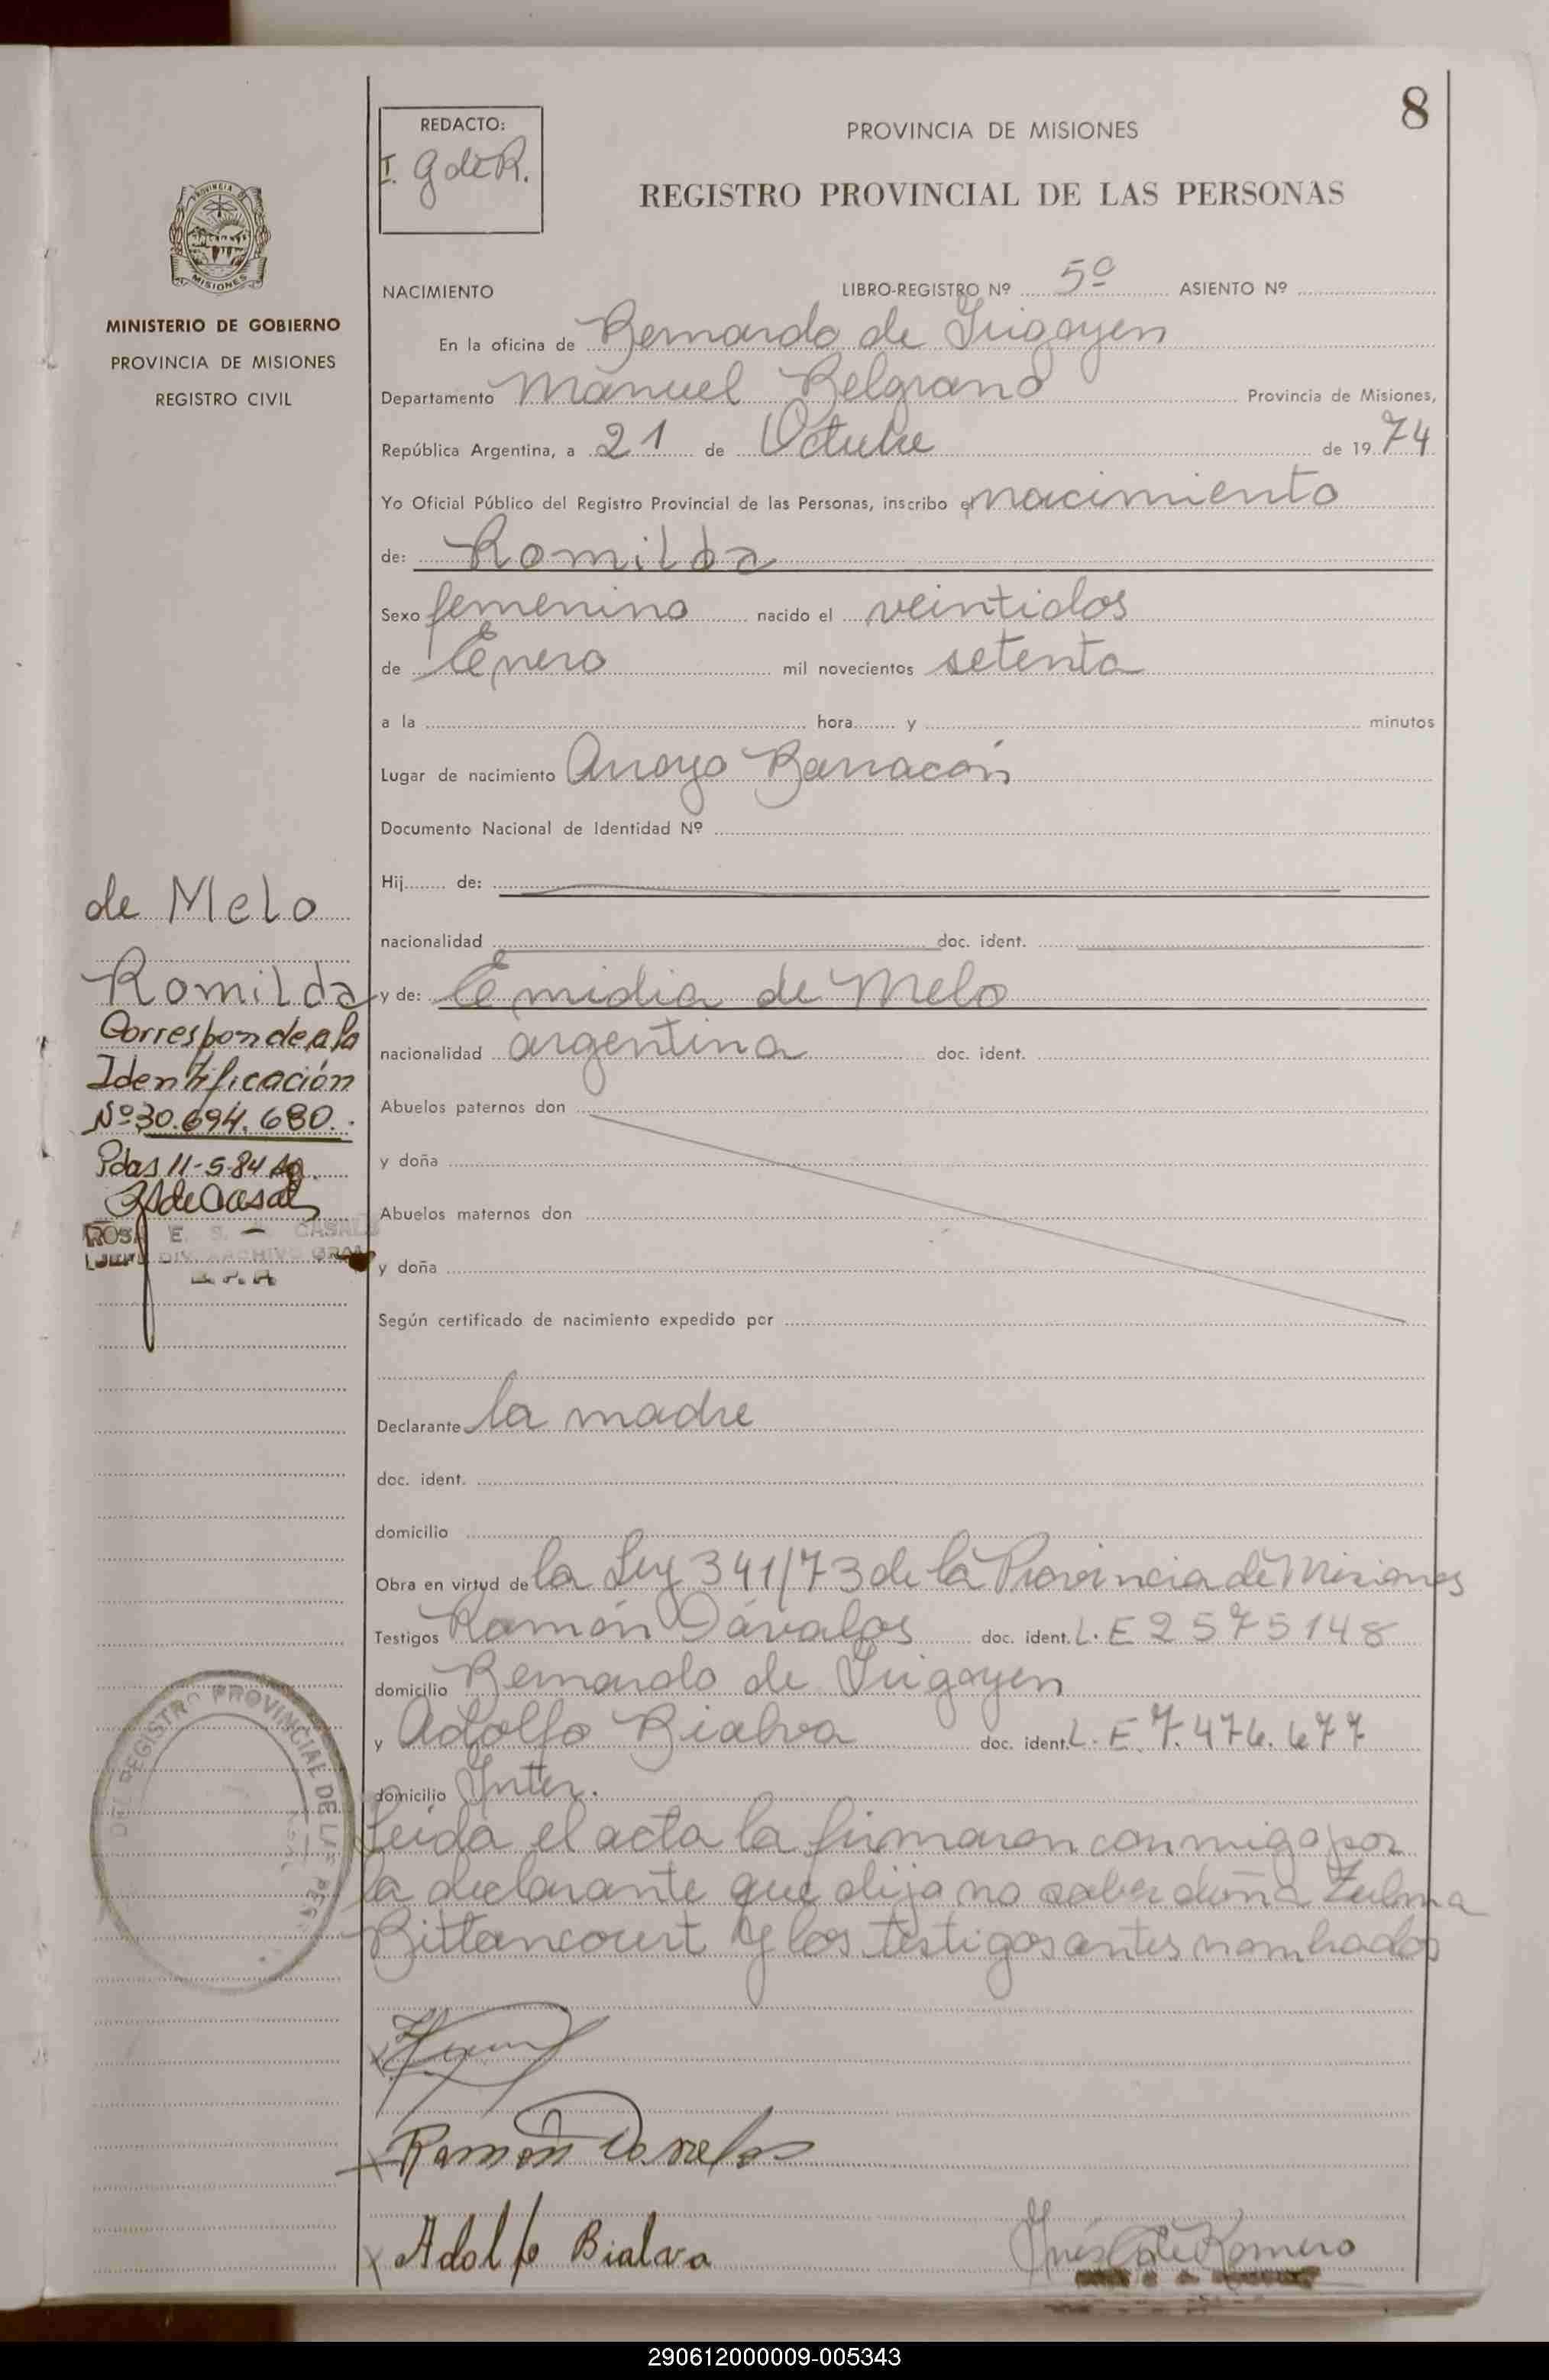 8
REDACTO:
I. G de R.
PROVINCIA DE MISIONES
REGISTRO PROVINCIAL DE LAS PERSONAS
PROVINCIA DE
MISIONES
MINISTERIO DE GOBIERNO
PROVINCIA DE MISIONES
REGISTRO CIVIL
NACIMIENTO LIBRO-REGISTRO Nº 5º ASIENTO Nº
En la oficina de Bernardo de Irigoyen
Departamento Manuel Belgrano Provincia de Misiones,
República Argentina, a 21 de Octubre de 1974
Yo Oficial Público del Registro Provincial de las Personas, inscribo el nacimiento
de: Romilda
Sexo femenino nacido el veintidos
de Enero mil novecientos setenta
a la hora y minutos
Lugar de nacimiento Arroyo Barracón
Documento Nacional de Identidad Nº
Hij de:
nacionalidad doc. ident.
y de: Emidia de Melo
nacionalidad argentina doc. ident.
Abuelos paternos don
y doña
Abuelos maternos don
y doña
Según certificado de nacimiento expedido por
Declarante la madre
doc. ident.
domicilio
Obra en virtud de la Ley 341/73 de la Provincia de Misiones
Testigos Ramón Dávalos doc. ident. L.E 2575148
domicilio Bernardo de Irigoyen
y Adolfo Bialva doc. ident. L.E 7.476.677
domicilio Inter.
Leida el acta la firmaron conmigo por
la declarante que dijo no saber doña Zulma
Bittencourt y los testigos antes nombrados
Ramón Davalos
Adolfo Bialava
Inés G de Romero
de Melo
Romilda
Corresponde a la
Identificación
Nº 30.694.680.
Pdas 11-5-84
ROSA E. S. CASAL
JEFE DIV. ARCHIVO GRAL
DEL REGISTRO PROVINCIAL DE LAS PER
290612000009-005343